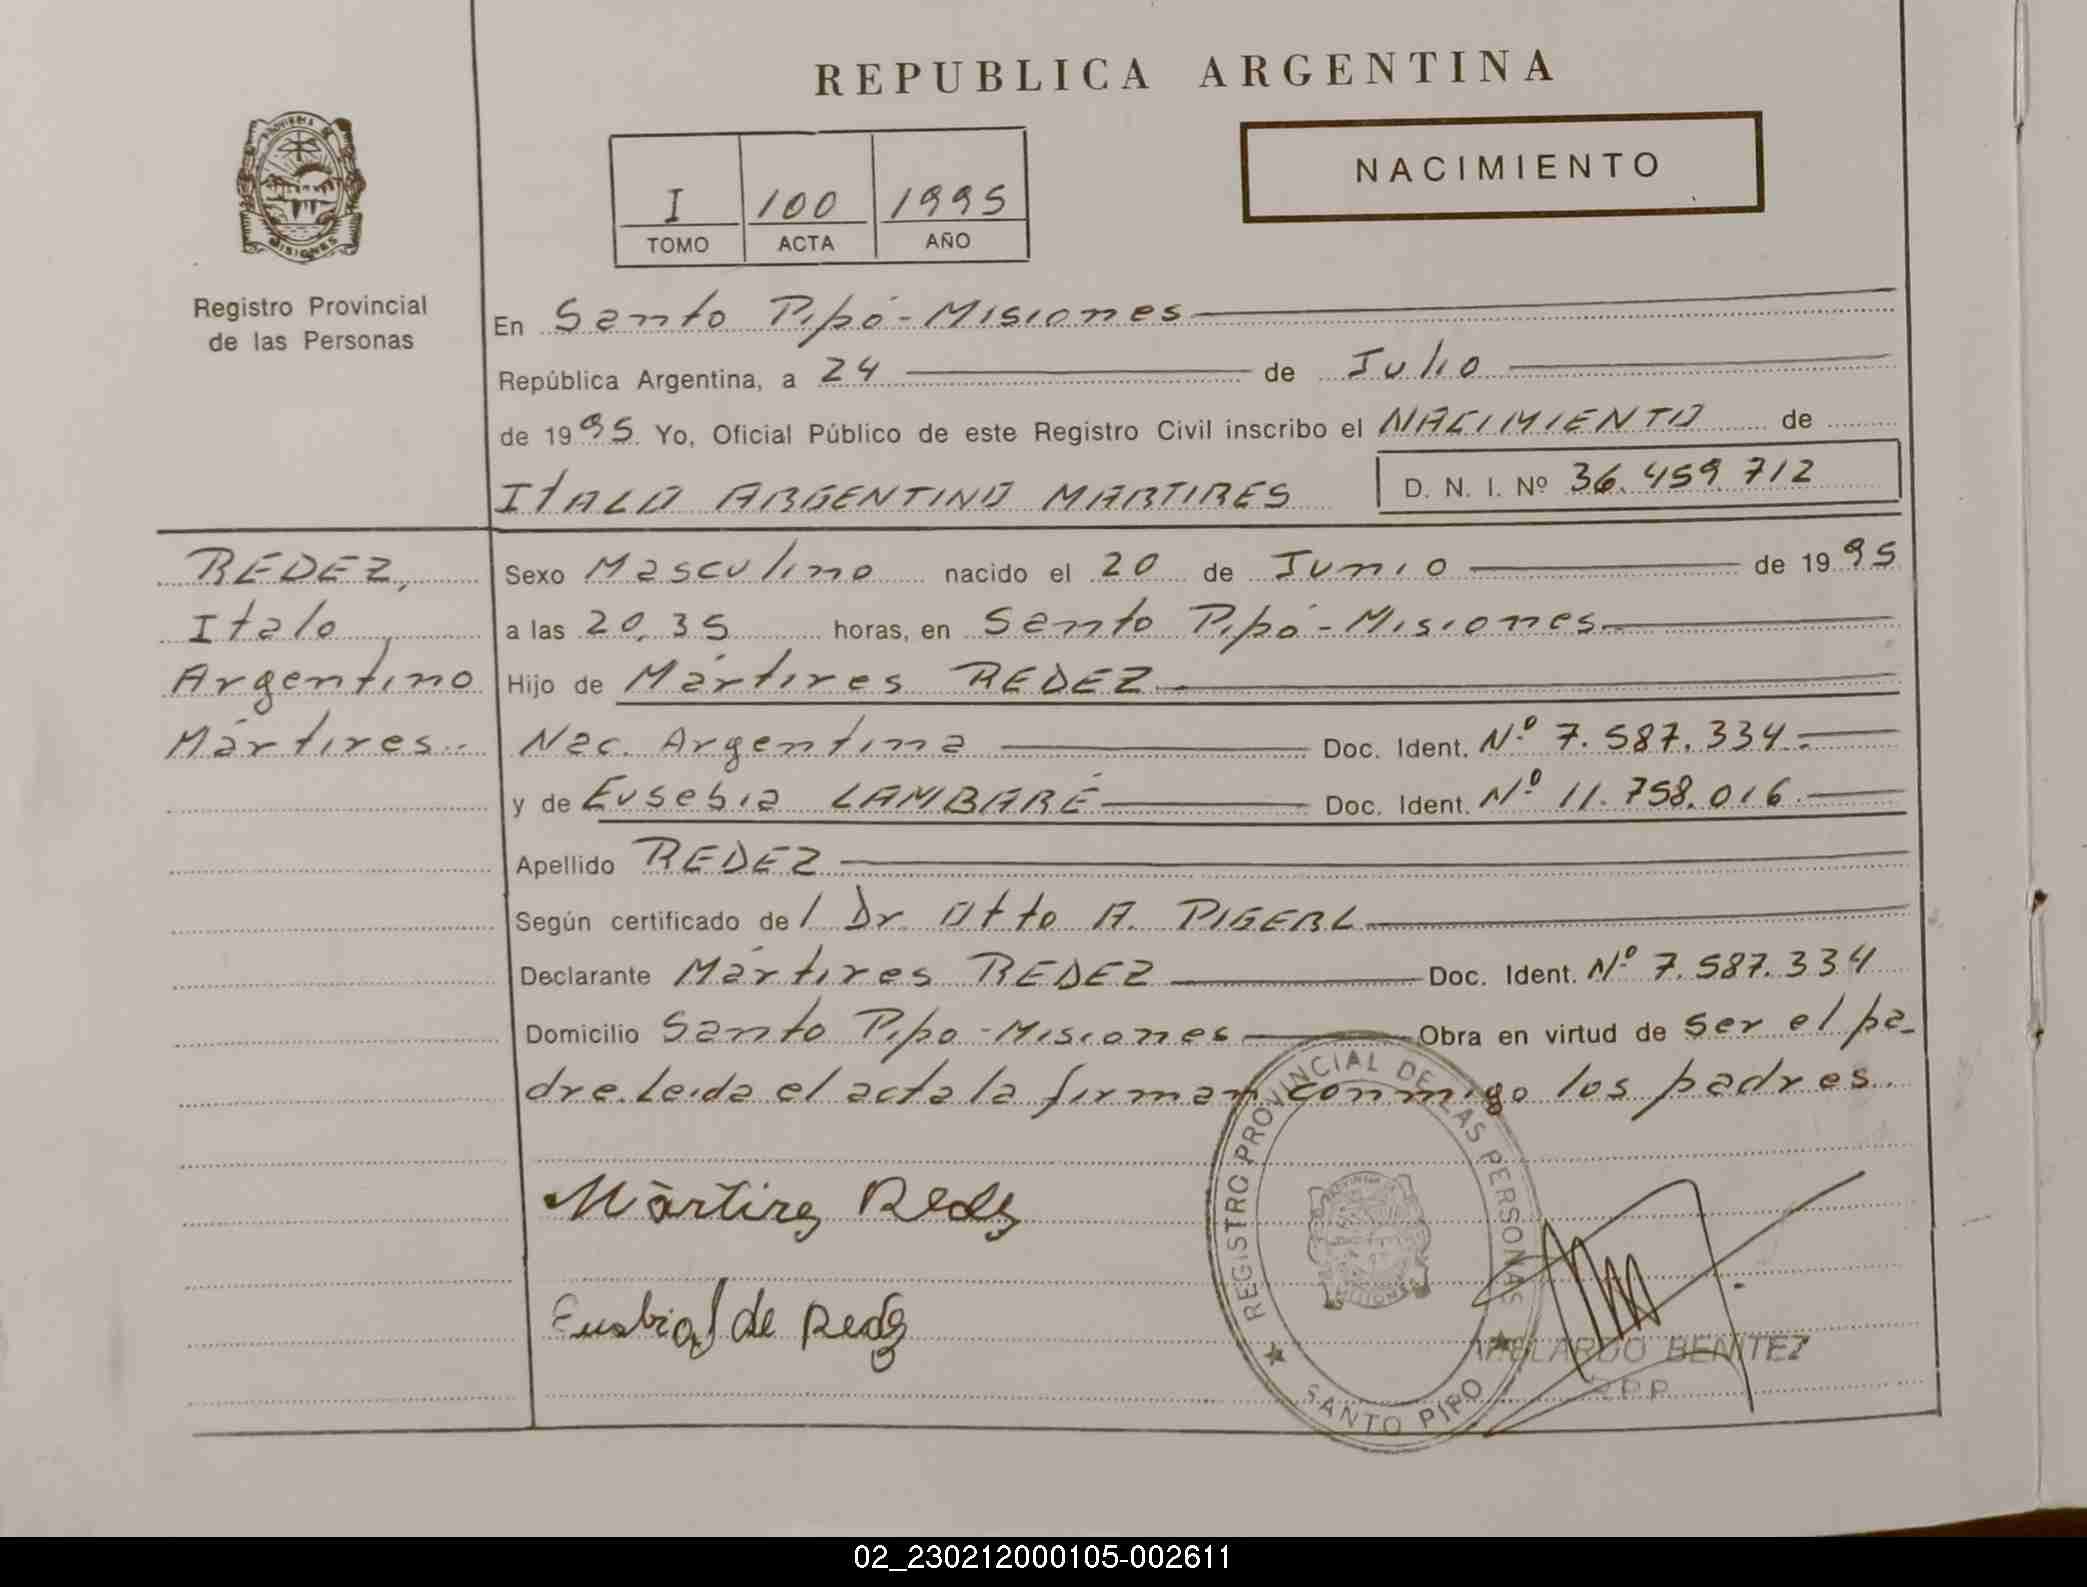 REPUBLICA ARGENTINA
NACIMIENTO
I 100 1995
TOMO ACTA AÑO
PROVINCIA DE
MISIONES
Registro Provincial
de las Personas
En Santo Pipó - Misiones
República Argentina, a 24 de Julio
de 1995. Yo, Oficial Público de este Registro Civil inscribo el NACIMIENTO de
ItALO ARGENTINO MARTIRES D. N. I. Nº 36.459.712
REDEZ,
Italo
Argentino
Mártires..
Sexo Masculino nacido el 20 de Junio de 1995
a las 20,35 horas, en Santo Pipó - Misiones
Hijo de Mártires REDEZ
Nac. Argentina Doc. Ident. Nº 7.587.334.-
y de Eusebia LAMBARÉ Doc. Ident. Nº 11.758.016.-
Apellido REDEZ
Según certificado del Dr. Otto A. PIGERL
Declarante Mártires REDEZ Doc. Ident. Nº 7.587.334
Domicilio Santo Pipo - Misiones Obra en virtud de ser el pa-
dre. Leida el acta la firman conmigo los padres.
Mártires Redez
de Redez
REGISTRO PROVINCIAL DE LAS PERSONAS
MISIONES
SANTO PIPO
ABELARDO BENITEZ
02_230212000105-002611